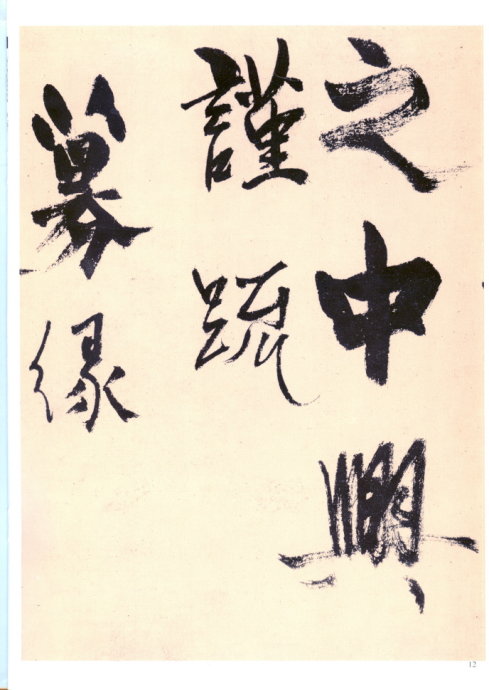 之中興
謹疏
募緣
12